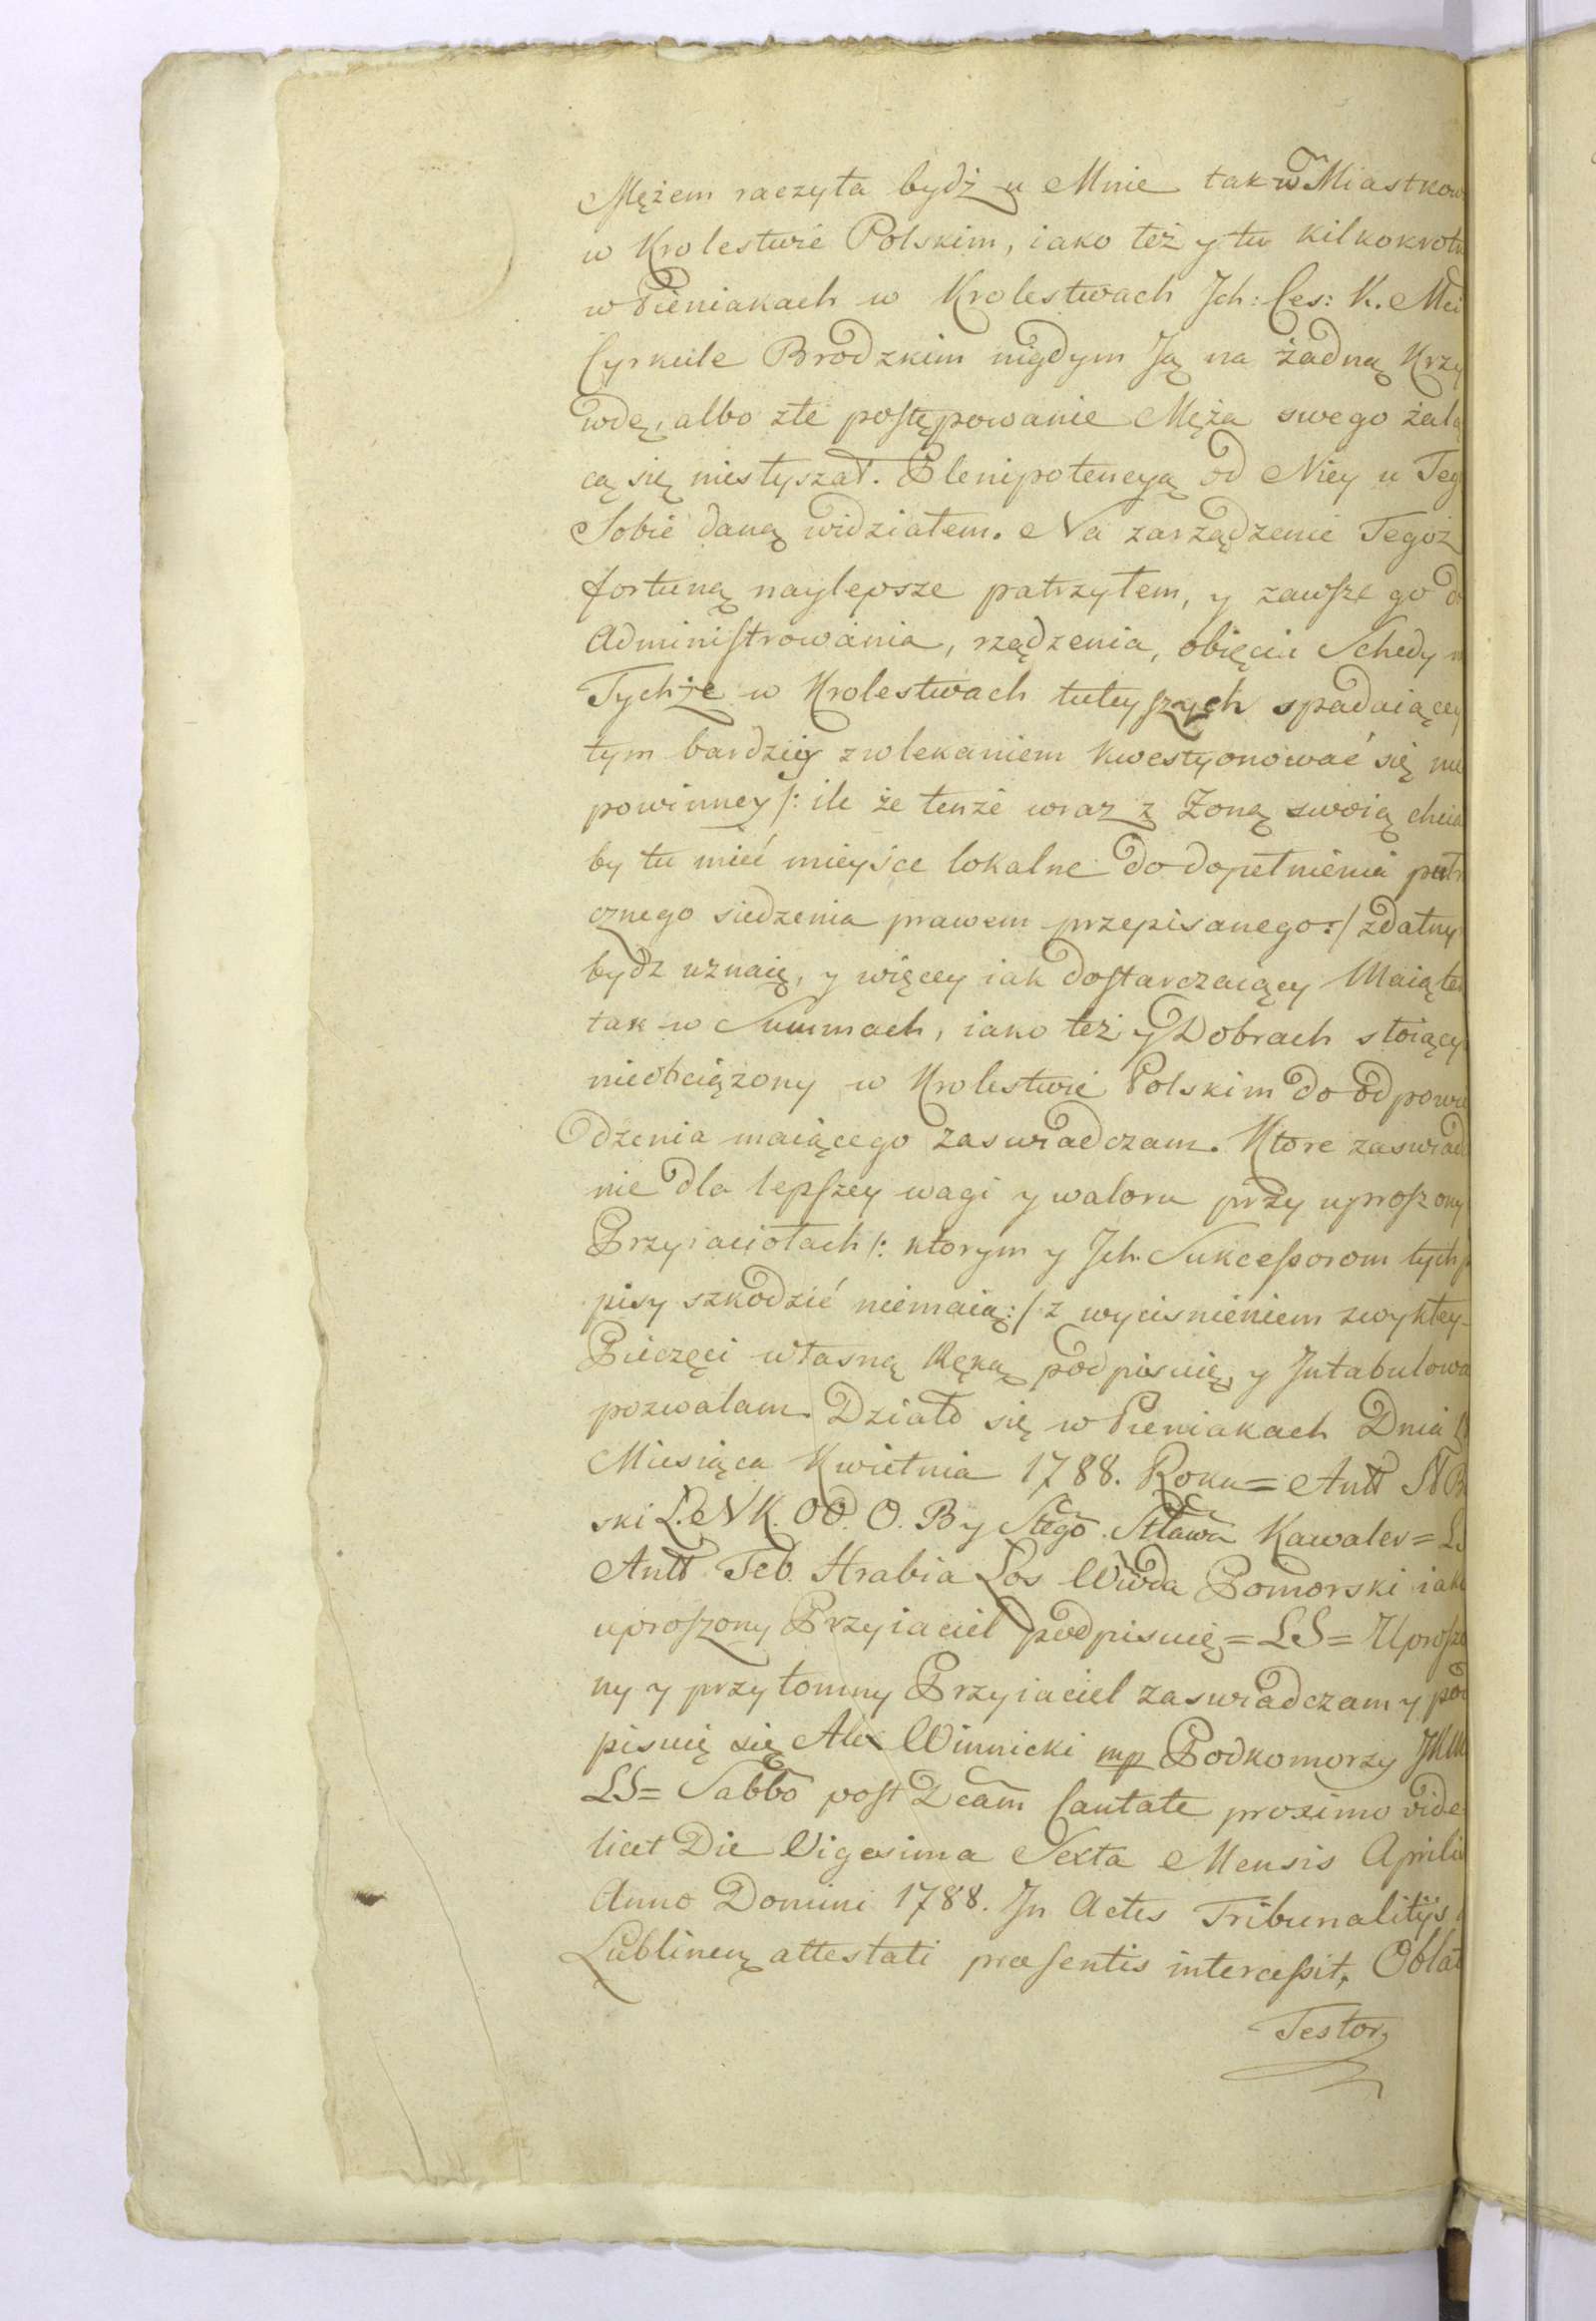 Mężem raczyła bydź u Mnie tak w Miastkow
w Krolestwie Polskim, iako też y tu kilkokrotn
w Pieniakach w Krolestwach Jch: Ces: K. Mci
Cyrkule Brodzkim nigdym Ją na żadną Krzy
wdę, albo złe postępowanie Męża swego żalą
cą się niesłyszał. Plenipotencyą od Niey u Teg
Sobie daną widziałem. Na zarządzenie Tegoż
fortuną naylepsze patrzyłem, y zawsze go d
Administrowania, rządzenia, obięcia Schedy n
Tychże w Krolestwach tuteyszych spadaiącey
tym bardziey zwlekaniem kwestyonować się nie
powinney /: ile że tenże wraz z Zoną swoią chcia
by tu mieć mieysce lokalne do dopełnienia
cznego siedzenia prawem przepisanego :/ zdatny
bydz uznaię, y więcey iak dostarczaiący Maiąte
tak w Summach, iako też y Dobrach stoiący
nieobciążony w Krolestwie Polskim do odpowie
dzenia maiącego zaswiadczam. Ktore zaswiad
nie dla lepszey wagi y waloru przy uproszony
Przyiaciołach /: ktorym y Jch Sukcessorom tych p
pisy szkodzić niemaią :/ z wycisnieniem zwykłey
Pieczęci własną Ręką podpisuię, y Jntabulowa
pozwalam. Działo się w Pieniakach Dnia
Miesiąca Kwietnia 1788. Roku = Antt
ski L. N K. OO. O. B y Stego Stława Kawaler = L
Antt Feb. Hrabia Łos Wwda Pomorski iako
uproszony Przyiaciel podpisuię = LS = Uproszo
ny y przytomny Przyiaciel zaswiadczam y pod
pisuię się Alex Winnicki mp Podkomorzy JKM
LS = Sabbo post Dcam Cantate proximo vide
licet Die Vigesima Sexta Mensis Aprilis
Anno Domini 1788. Jn Actis Tribunalitijs
Lublinen attestati præsentis intercessit, Oblat
Testor